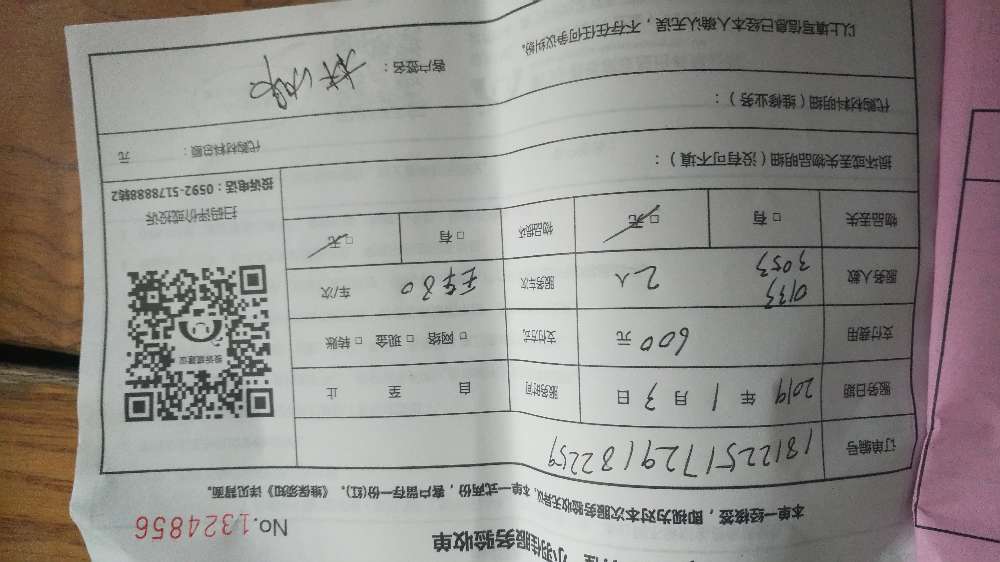 小羽佳服务验收单
No.1324856
本单一经核签，即视为对本次服务验收无异议。本单一式两份，客户留存一份(红)。《维保须知》详见背面。
订单编号 181225172918 2259
服务日期 2019 年 1 月 3 日 服务时间 自 至 止
支付费用 600 元 支付方式 □ 网络 □ 现金 □ 转账
服务人数 0133 3053 2人 服务车次 30 车/次
物品丢失 □ 有 □ 无 物品损坏 □ 有 □ 无
损坏或丢失物品明细（没有可不填）：
代购材料明细（维修业务）：
代购材料总额： 元
以上填写信息已经本人确认无误，不存在任何争议纠纷。
客户签名：
投诉或建议
扫码评价或投诉
投诉电话：0592-5178888转2